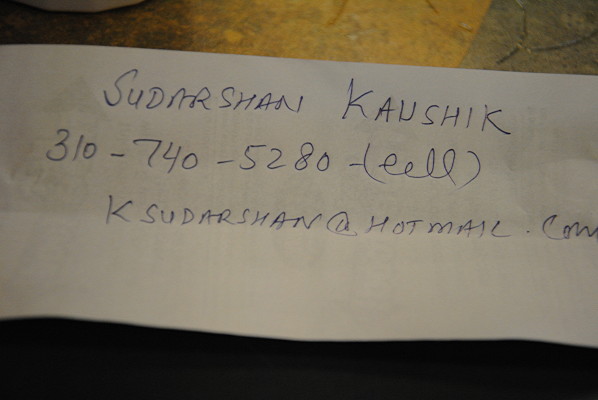 SUDARSHAN KAUSHIK
310-740-5280-(cell)
KSUDARSHAN@HOTMAIL.COM